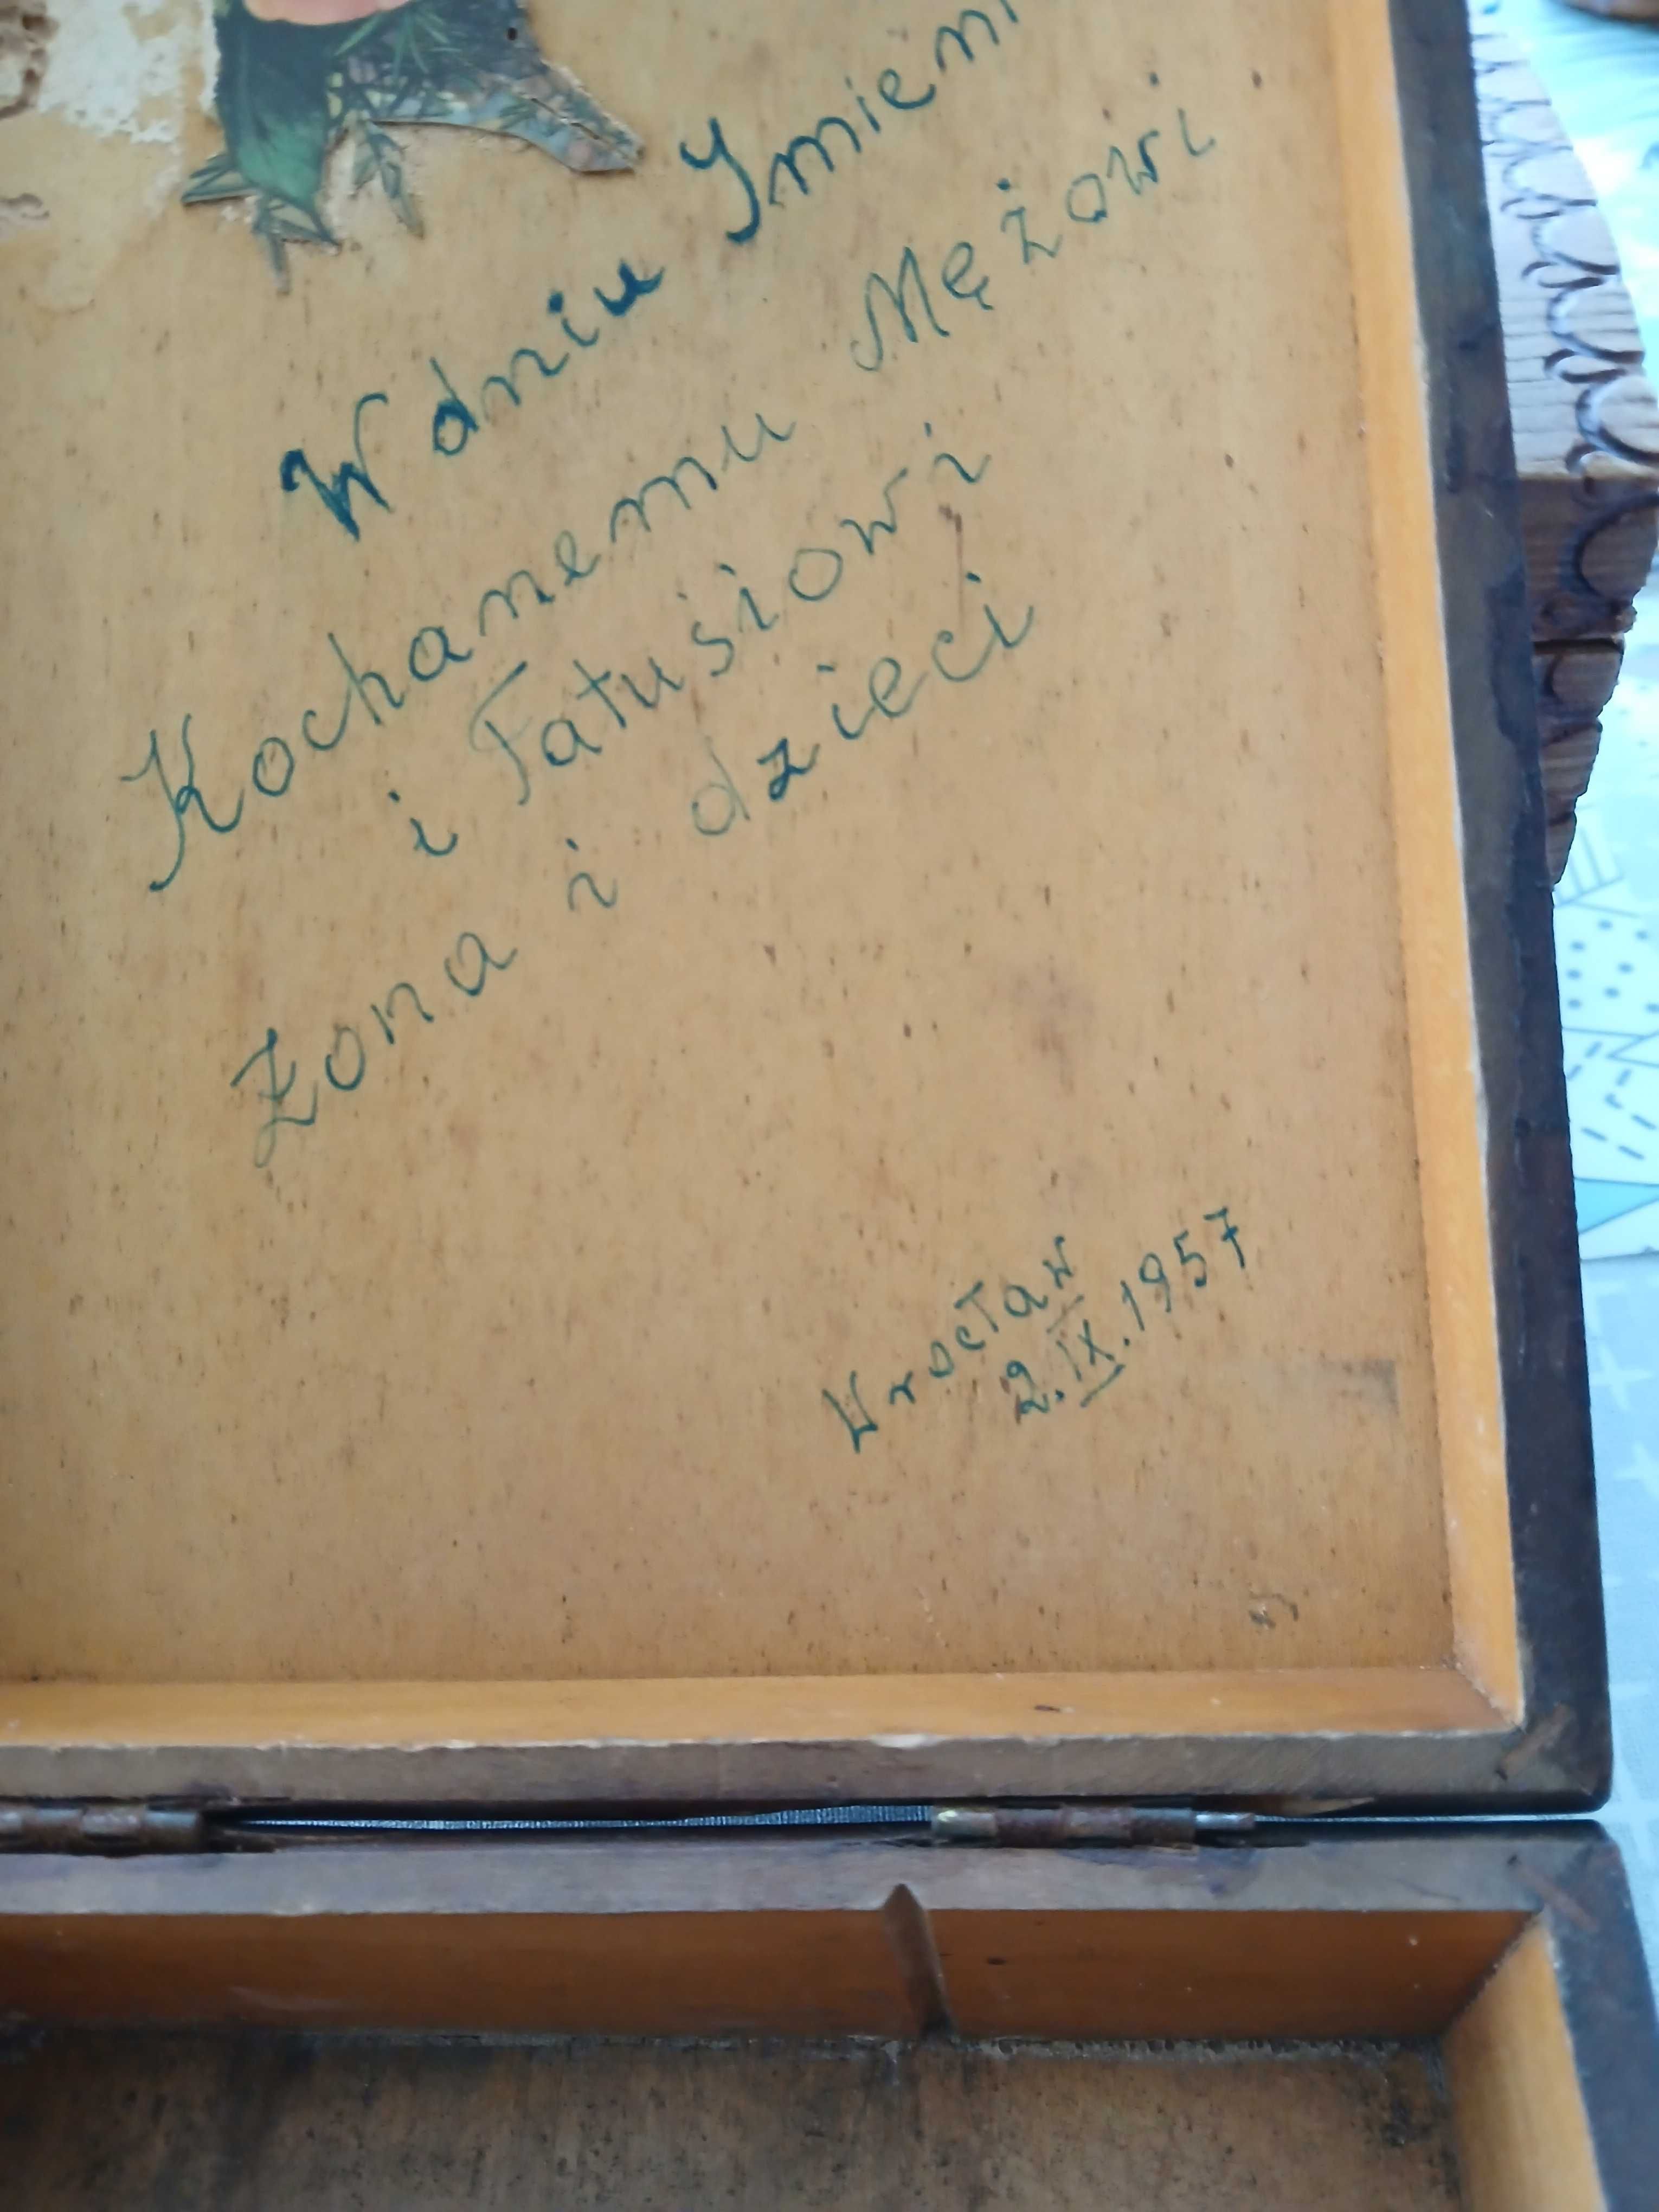 W dniu Imieni
Kochanemu Mężowi
i Tatusiowi
Żona i dzieci
Wrocław
2.IX.1957